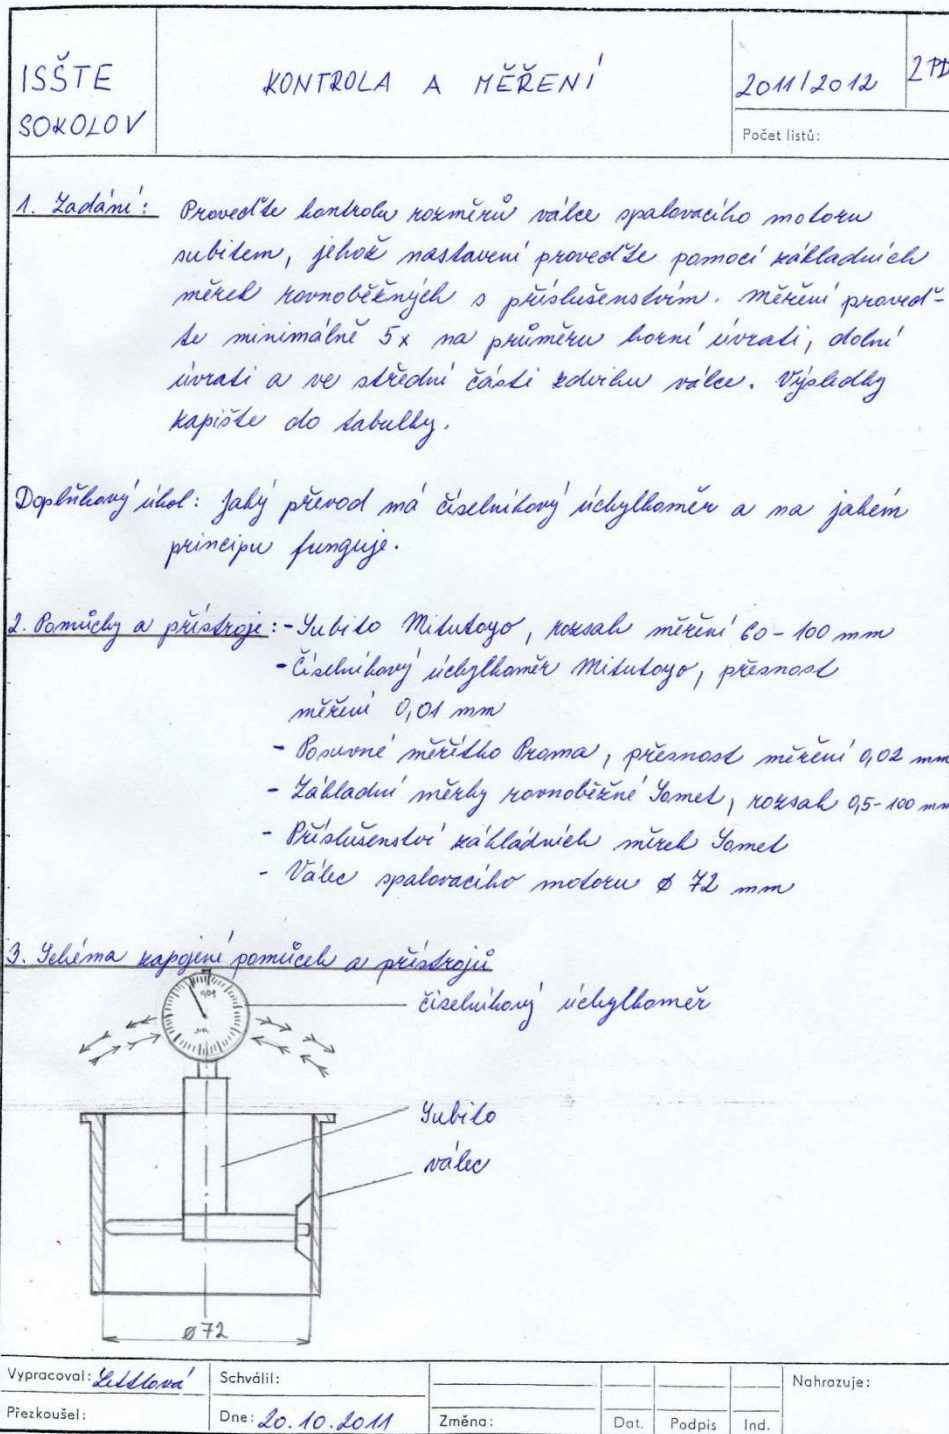 ISŠTE
SOKOLOV
KONTROLA A MĚŘENÍ
2011/2012
2PD
Počet listů:
1. Zadání: Proveďte kontrolu rozměrů válce spalovacího motoru
subitem, jehož nastavení proveďte pomocí základních
měrek rovnoběžných s příslušenstvím. Měření proveď-
te minimálně 5x na průměru horní úvrati, dolní
úvrati a ve střední části zdvihu válce. Výsledky
zapište do tabulky.
Doplňkový úkol: Jaký převod má číselníkový úchylkoměr a na jakém
principu funguje.
2. Pomůcky a přístroje: - Subito Mitutoyo, rozsah měření 60-100 mm
- Číselníkový úchylkoměr Mitutoyo, přesnost
měření 0,01 mm
- Posuvné měřítko Proma, přesnost měření 0,02 mm
- Základní měrky rovnoběžné Somet, rozsah 0,5-100 mm
- Příslušenství základních měrek Somet
- Válec spalovacího motoru ø 72 mm
3. Schéma zapojení pomůcek a přístrojů
0,01
číselníkový úchylkoměr
Subito
válec
ø72
Vypracoval: Lettlová
Schválil:
Nahrazuje:
Přezkoušel:
Dne: 20.10.2011
Změna:
Dat.
Podpis
Ind.